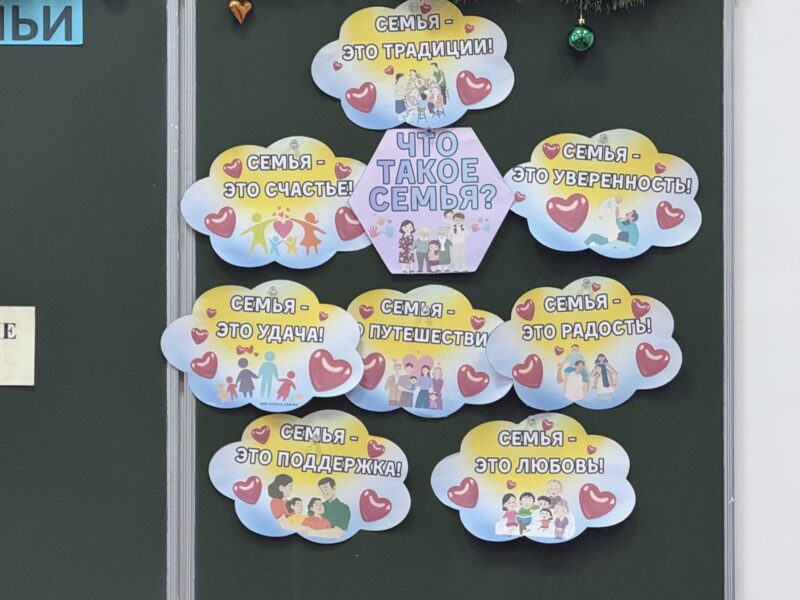 ЬИ
СЕМЬЯ -
ЭТО ТРАДИЦИИ!
ЧТО
ТАКОЕ
СЕМЬЯ?
СЕМЬЯ -
ЭТО СЧАСТЬЕ!
СЕМЬЯ -
ЭТО УВЕРЕННОСТЬ!
Е
СЕМЬЯ -
ЭТО УДАЧА!
СЕМЬЯ -
О ПУТЕШЕСТВИ
СЕМЬЯ -
ЭТО РАДОСТЬ!
СЕМЬЯ -
ЭТО ПОДДЕРЖКА!
СЕМЬЯ -
ЭТО ЛЮБОВЬ!